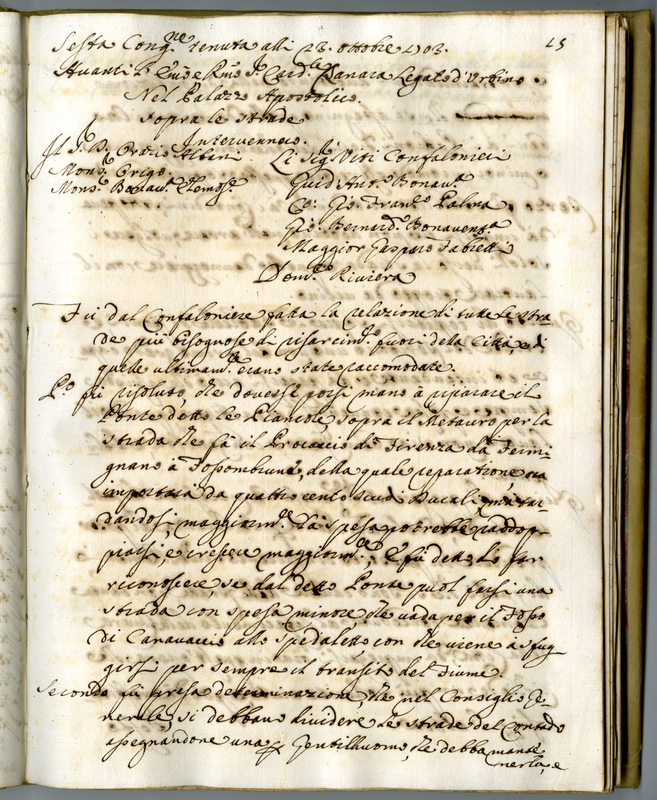 15
Sesta Cong.ne tenuta alli 23. ottobre 1703.
Avanti l' Em̃o e Rm̃o S.r Card.le Tanara Legato d'Urbino.
Nel Palazzo Apostolico.
Sopra le strade
Intervennero.
Il S.r B. Orazio Albani Li Sig.ri Viti Confalonieri
Mons. Grigo Guid'Ant.o Bonav.a
Mons.r Bonav.a Co: Gio: Fran.co Palma
Gio: Bernard.o Bonaventa
Maggior Gasparo Fabretti
Dom.co Riviera
Fu dal Confaloniere fatta la relazione di tutte le stra
de più bisognose di risarcim.to fuori della Città, e di
quelle ultimam.te erano state raccomodate.
P.o fu risoluto, che dovesse porsi mano à riparare il
Ponte detto le Pianole sopra il Metauro per la
strada che fà il Procaccio di Firenza dà Fermi
gnano à Fossombrune, della quale reparatione, ora
importarà da quattro cento scudi Ducali, mà tar
dandosi maggiorm.te la spesa potrebbe raddop
piarsi, e crescere maggiorm.te, e fù detto di far
riconoscere, se dal detto Ponte puol farsi una
strada con spesa minore, che vada per il Fosso
di Canavaccio allo spedaletto con che viene à sfug
girsi per sempre il transito del Fiume.
Secondo fù presa determinazione, che nel Consiglio Ge
nerale, si debbano dividere le strade del Contado
assegnandone una p Gentilhuomo, che debba mante
nerla, e